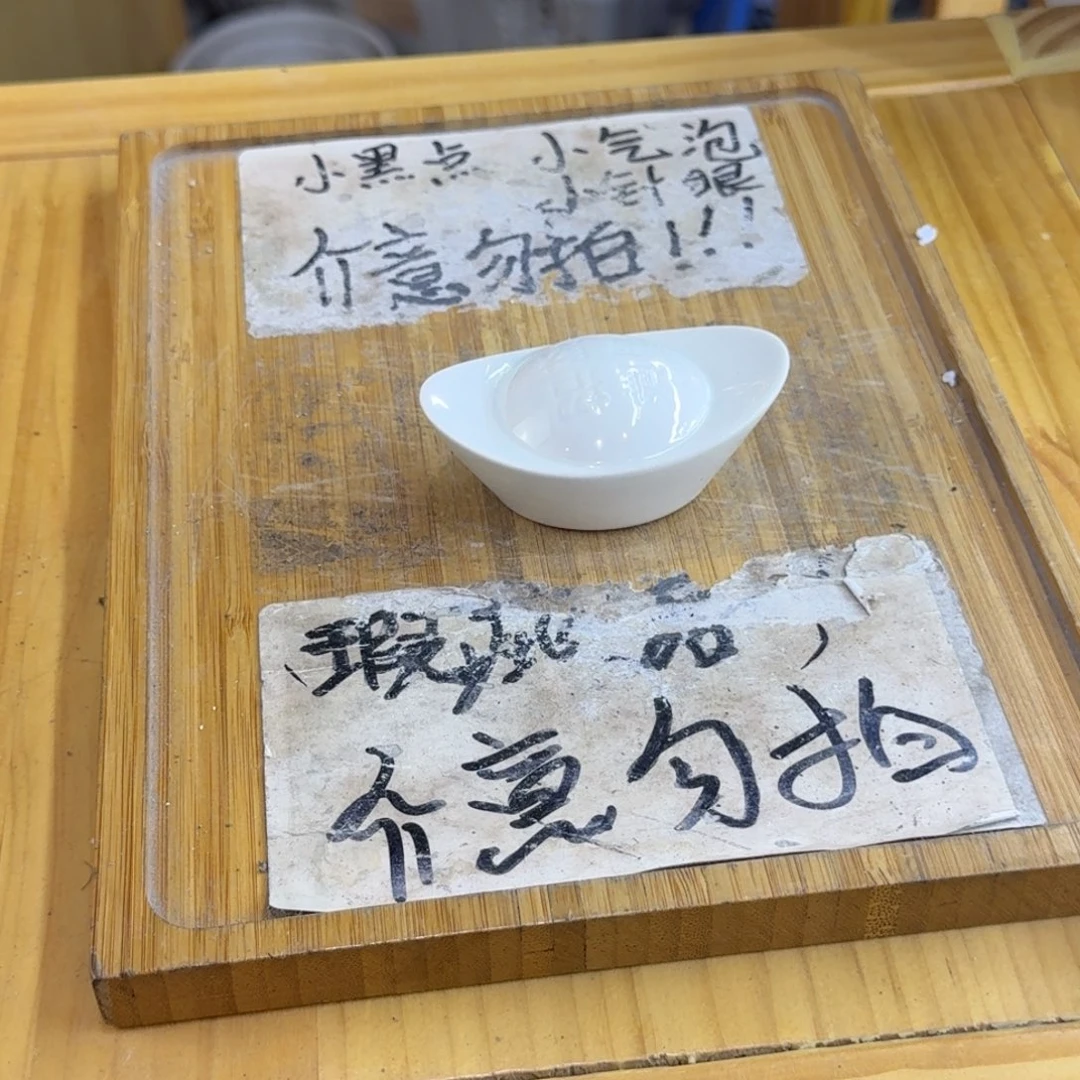 小黑点 小气泡
小针眼
介意勿拍!!!
瑕疵品
介意勿拍